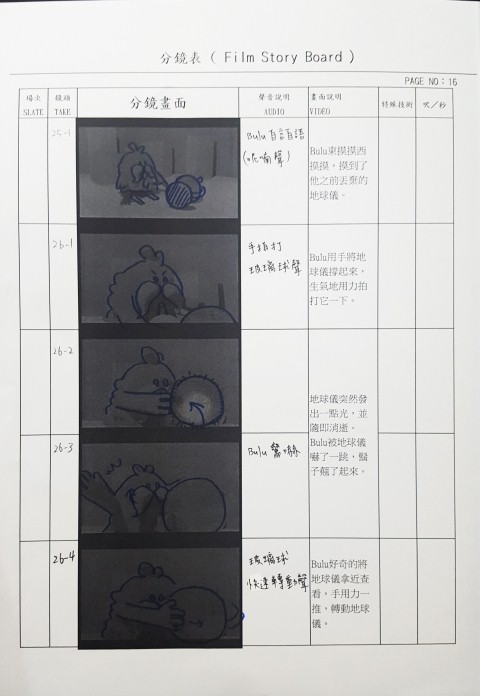 分鏡表 ( Film Story Board )
PAGE NO：16
場次 鏡頭 分鏡畫面 聲音說明 畫面說明 特殊技術 呎／秒
SLATE TAKE AUDIO VIDEO
25-1
Bulu自言自語
(呢喃聲)
Bulu東摸摸西
摸摸，摸到了
他之前丟棄的
地球儀。
26-1
手拍打
玻璃球聲
Bulu用手將地
球儀撐起來，
生氣地用力拍
打它一下。
26-2
地球儀突然發
出一點光，並
隨即消逝。
26-3
Bulu 驚嚇
Bulu被地球儀
嚇了一跳，鬍
子翹了起來。
26-4
玻璃球
快速轉動聲
Bulu好奇的將
地球儀拿近查
看，手用力一
推，轉動地球
儀。